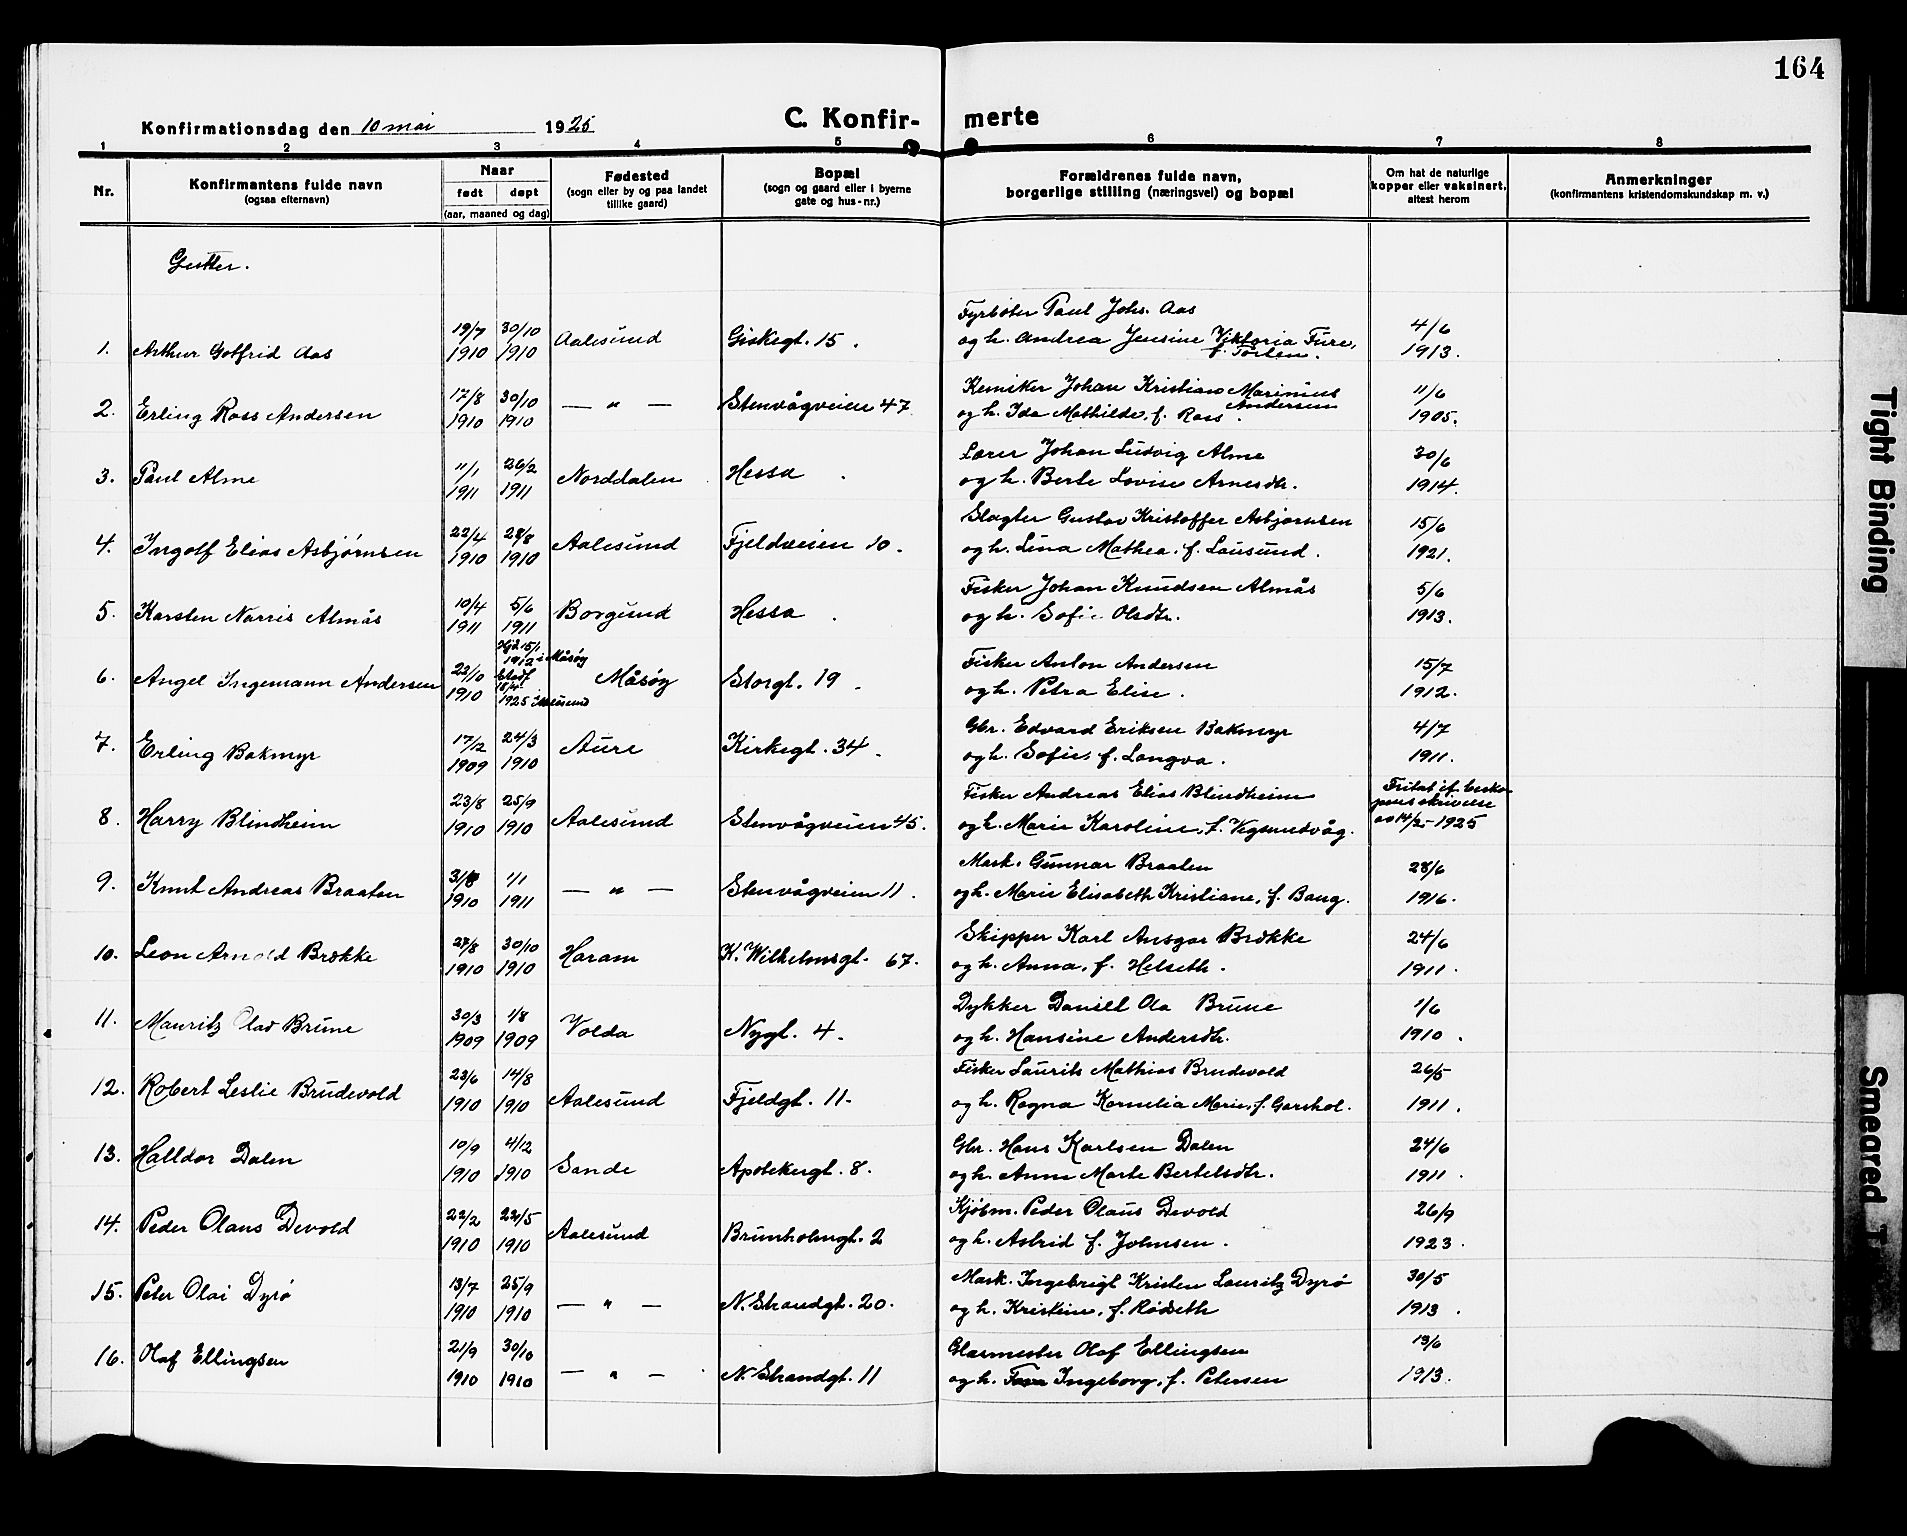 164
Konfirmationsdag den 10 mai 1925
C. Konfir- merte
1 2 3 4 5 6 7 8
Nr.
Konfirmantens fulde navn
(ogsaa efternavn)
Naar
født døpt
(aar, maaned og dag)
Fødested
(sogn eller by og paa landet
tillike gaard)
Bopæl
(sogn og gaard eller i byerne
gate og hus-nr.)
Forældrenes fulde navn,
borgerlige stilling (næringsvei) og bopæl
Om hat de naturlige
kopper eller vaksinert,
attest herom
Anmerkninger
(konfirmantens kristendomskundskap m. v.)
Gutter.
Fyrbøter Paul Johs. Aas
1. Arthur Gotfrid Aas 19/7 1910 30/10 1910 Aalesund Giskegt. 15. og h. Andrea Jensine Viktoria Fure, 4/6 1913.
f. Tosten.
Kemiker Johan Kristian Marinius
2. Erling Ross Andersen 17/8 1910 30/10 1910 — " — Stenvågveien 47 og h. Ida Mathilde, f. Ross. Andersen 11/6 1905.
Lærer Johan Ludvig Alme
3. Paul Alme 11/1 1911 26/2 1911 Norddalen Hessa og h. Berte Lovise Arnesdtr. 30/6 1914.
Slagter Gustav Kristoffer Asbjørnsen
4. Ingolf Elias Asbjørnsen 22/4 1910 28/8 1910 Aalesund Fjeldveien 10. og h. Lina Mathea, f. Lausund. 15/6 1921.
Fisker Johan Knudsen Almås
5. Karsten Norris Almås 10/4 1911 5/6 1911 Borgund Hessa. og h. Sofie Olsdtr. 5/6 1913.
Hjd. 15/1 1912 i Måsøy
Stadf. 1925 i Aalesund
Fisker Anton Andersen
6. Angel Ingemann Andersen 1910 Måsøy Storgt. 19. og h. Petra Elise. 15/7 1912.
Gbr. Edvard Eriksen Bakmyr
7. Erling Bakmyr 17/2 1909 24/3 1910 Aure Kirkegt. 34. og h. Sofie, f. Longva. 4/7 1911.
Fisker Andreas Elias Blindheim
8. Harry Blindheim 23/8 1910 25/9 1910 Aalesund Stenvågveien 45. og h. Marie Karoline, f. Vegsundvåg. Fritat if. bisko-
pens skrivelse
av 14/2 - 1925
Mask. Gunnar Braaten
9. Knut Andreas Braaten 1910 1/1 1911 — " — Stenvågveien 11. og h. Marie Elisabeth Kristiane, f. Bang. 28/6 1916.
Skipper Karl Ansgar Brække
10. Leon Arnold Brække 27/8 1910 30/10 1910 Haram K. Wilhelmsgt. 67. og h. Anna, f. Helseth. 24/6 1911.
Dykker Daniel Ola Brune
11. Mauritz Olav Brune 30/3 1909 1/8 1909 Volda Nygt. 4. og h. Hansine Andersdtr. 1/6 1910.
Fisker Laurits Mathias Brudevold
12. Robert Leslie Brudevold 23/6 1910 14/8 1910 Aalesund Fjeldgt. 11. og h. Ragna Kornelia Marie, f. Garshol. 26/5 1911.
Gbr. Hans Karlsen Dalen
13. Halldor Dalen 10/9 1910 4/12 1910 Sande Apotekergt. 8. og h. Anne Marte Bertelsdtr. 24/6 1911.
Kjøbm. Peder Olaus Devold
14. Peder Olaus Devold 22/2 1910 22/5 1910 Aalesund Brunholmgt. 2 og h. Astrid f. Johnsen. 26/9 1923.
Mask. Ingebrigt Kristen Lauritz Dyrø
15. Peter Olai Dyrø 13/7 1910 25/9 1910 — " — N. Strandgt. 20. og h. Kristine, f. Rødseth 30/5 1913.
Glarmester Olaf Ellingsen
16. Olaf Ellingsen 21/9 1910 30/10 1910 — " — N. Strandgt. 11 og h. Ingeborg, f. Petersen 13/6 1913.
Tight Binding
Smeared T